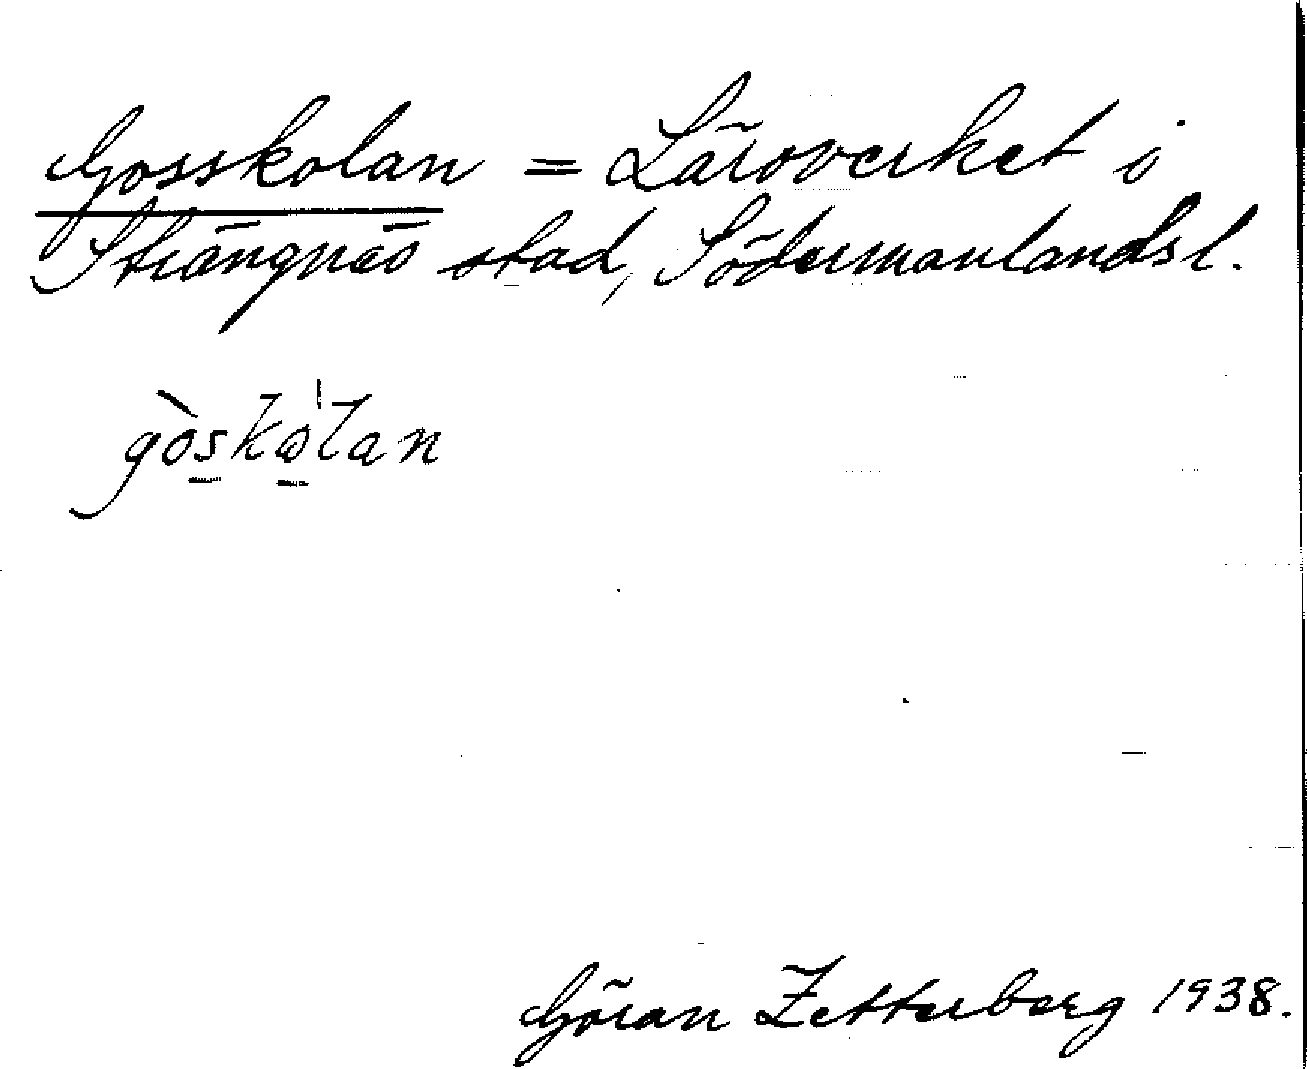 Gosskolan = Läroverket i
Strängnäs stad, Södermanlands l.
gòskɷ̍lan
Göran Zetterberg 1938.